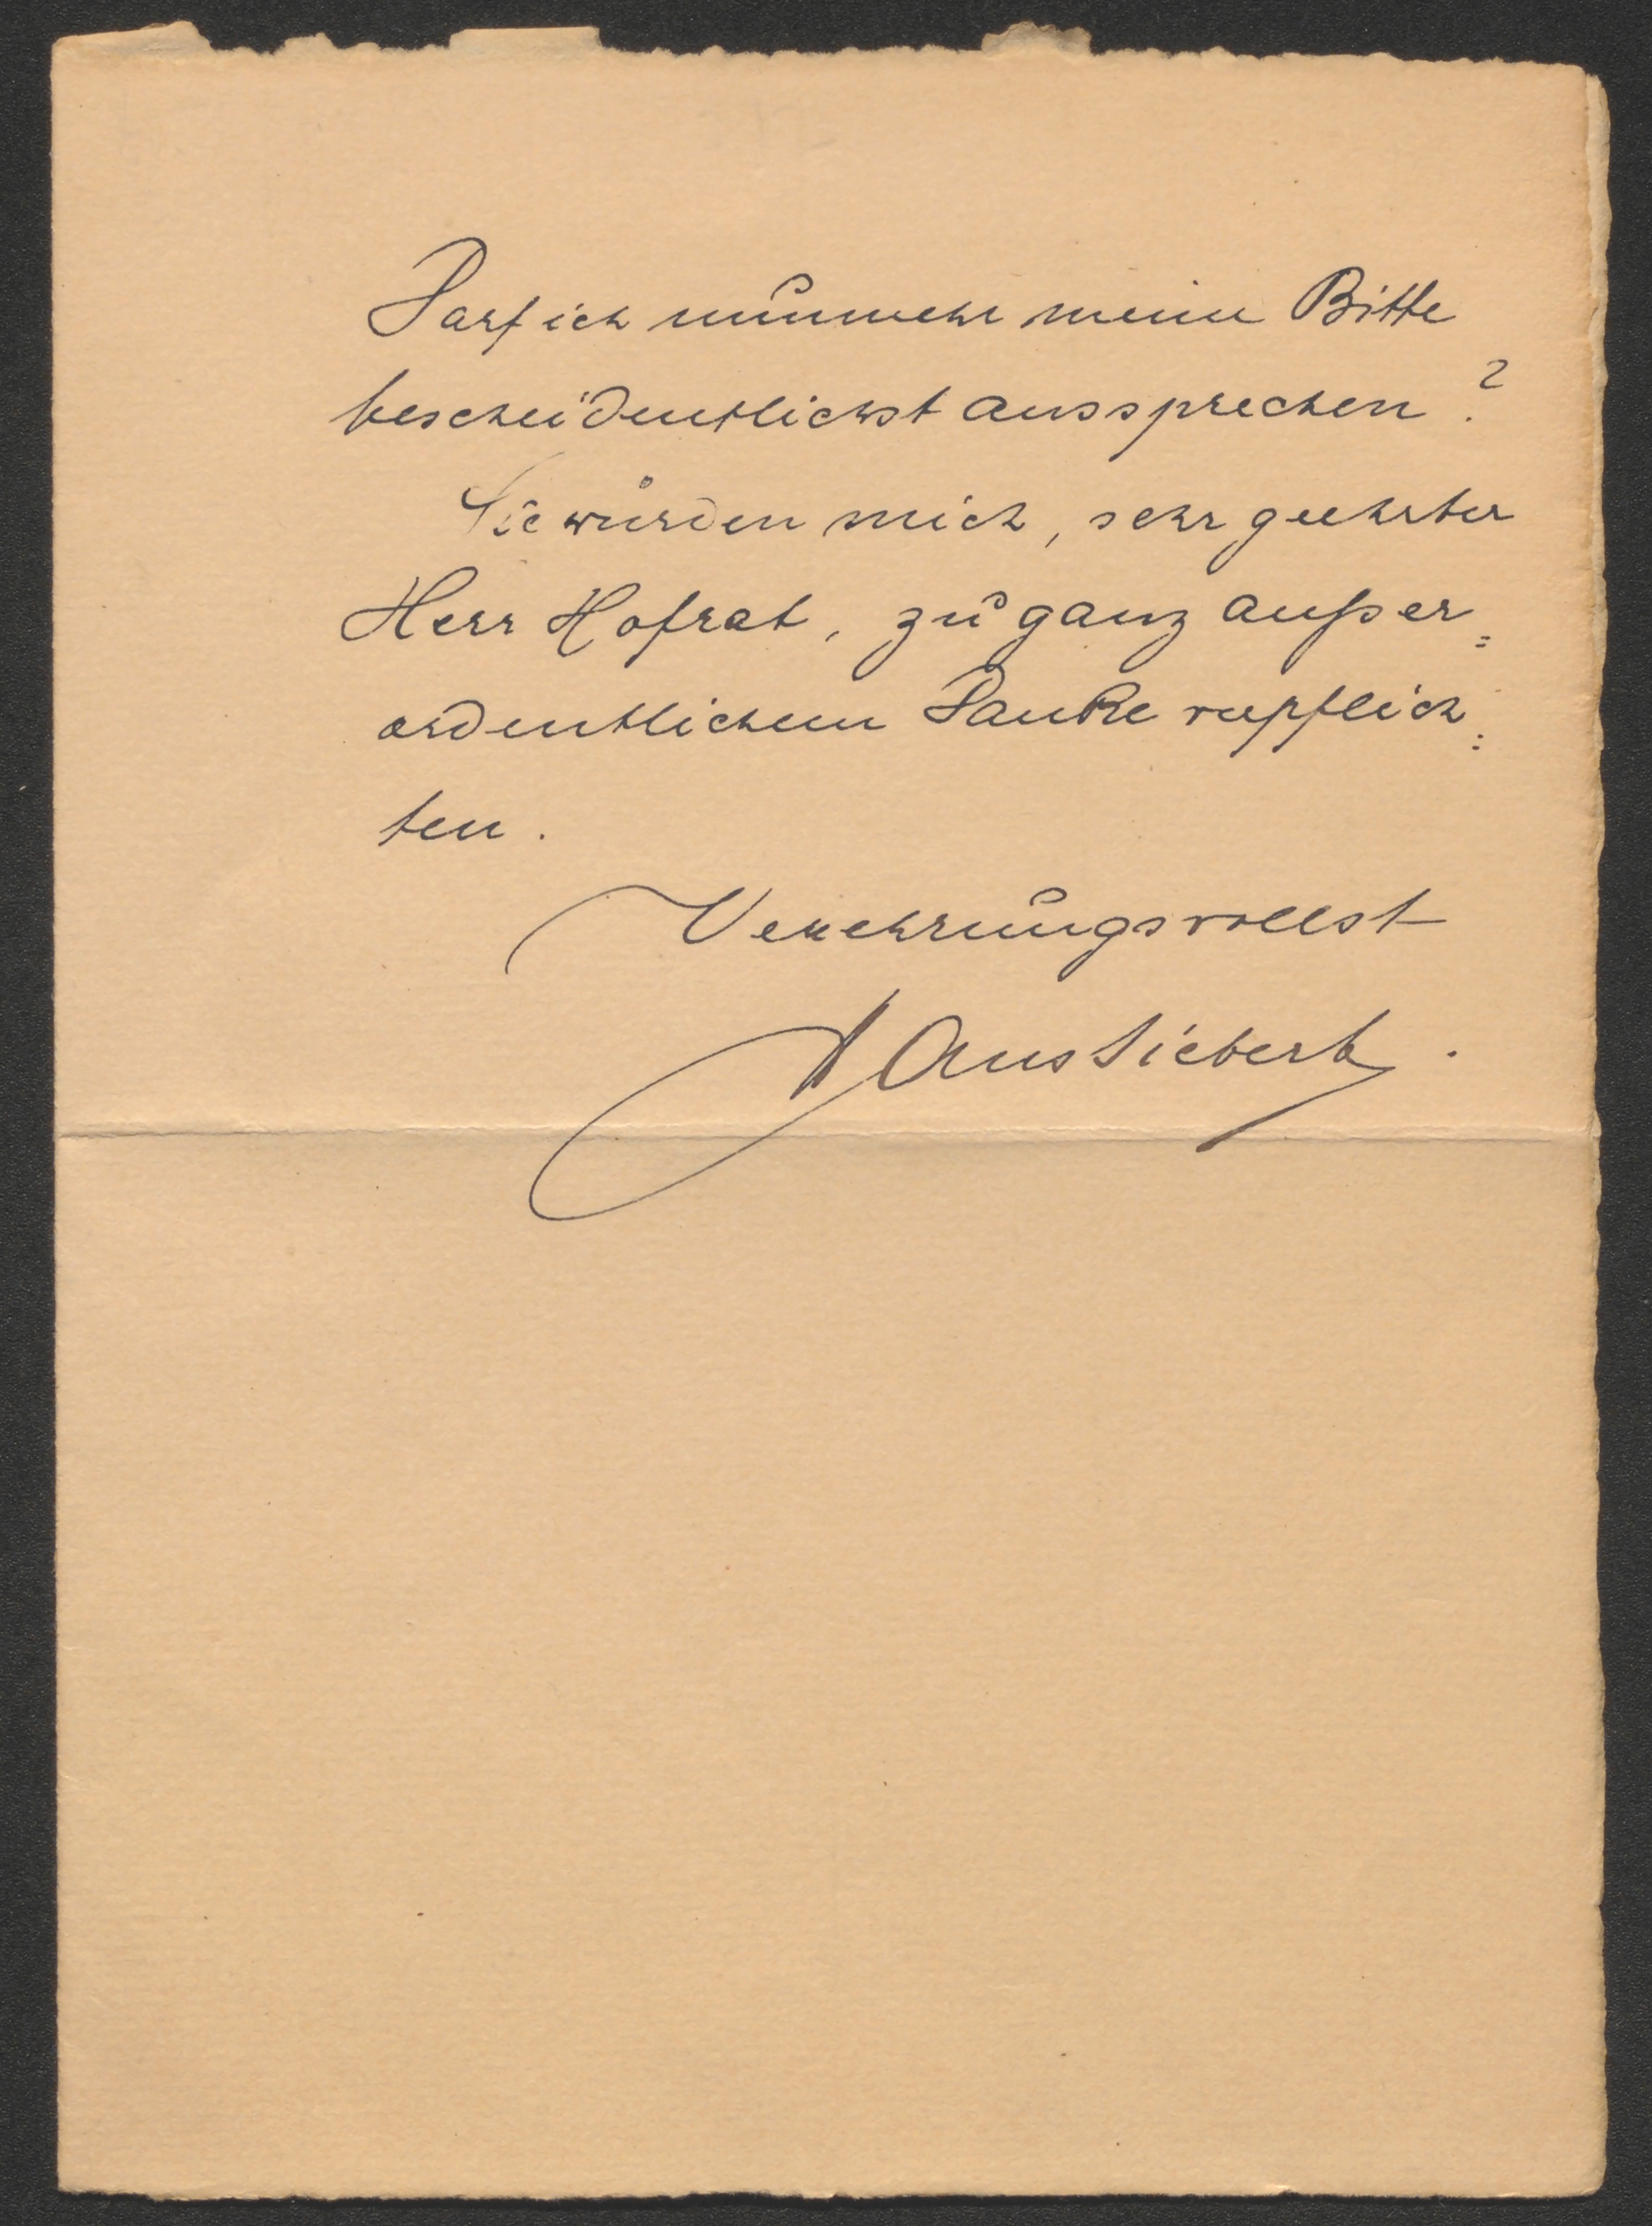 Darf ich nunmehr meine Bitte
bescheidentlichst aussprechen?
Sie würden mich, sehr geehrter
Herr Hofrat, zu ganz außer=
ordentlichem Danke verpflich=
ten.
Verehrungsvollst
Hans Siebert.